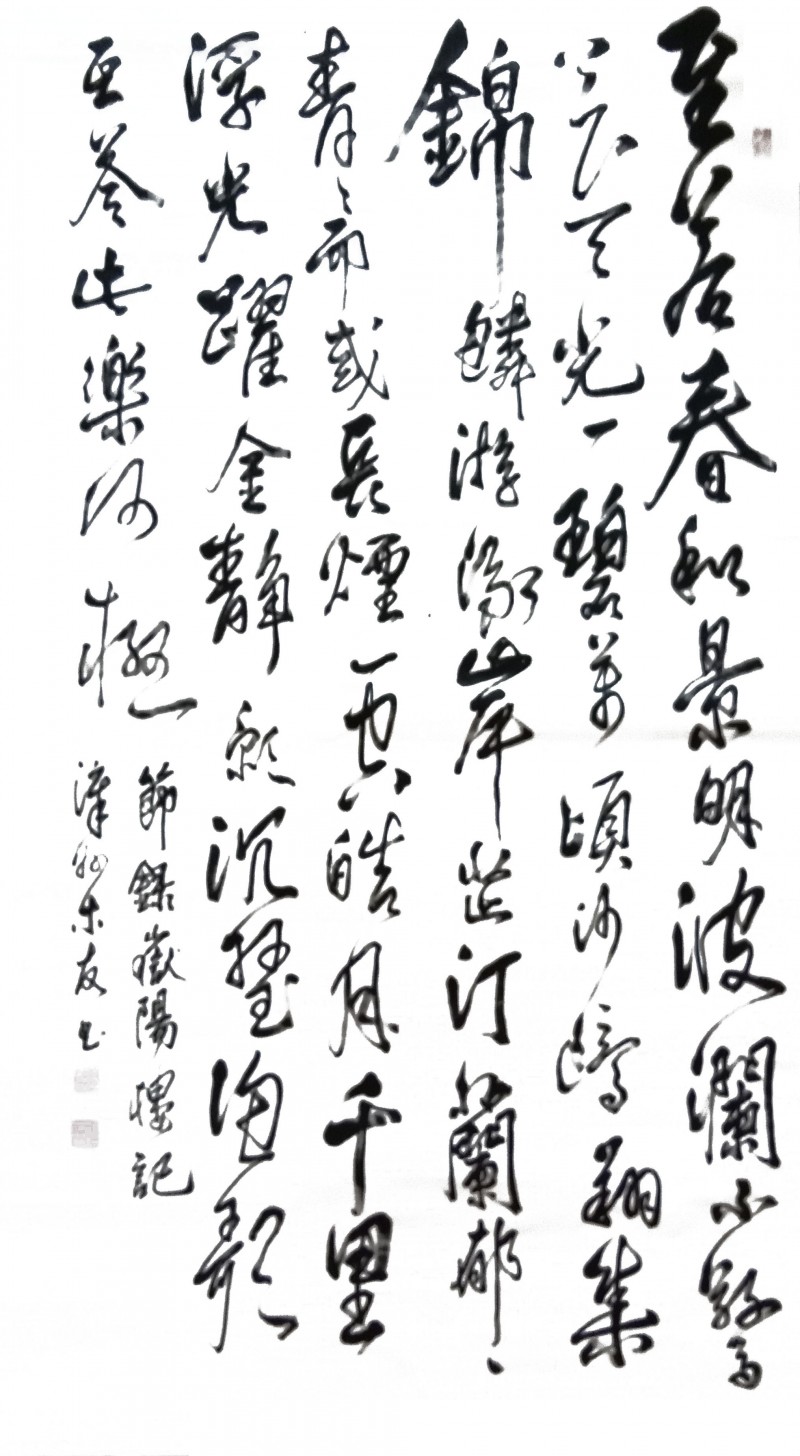 至若春和景明波瀾不驚
上下天光一碧萬頃沙鷗翔集
錦鱗游泳岸芷汀蘭郁〻
青〻而或長煙一空皓月千里
浮光躍金靜影沉璧漁歌
互答此樂何極
節錄嶽陽樓記
漳州友书